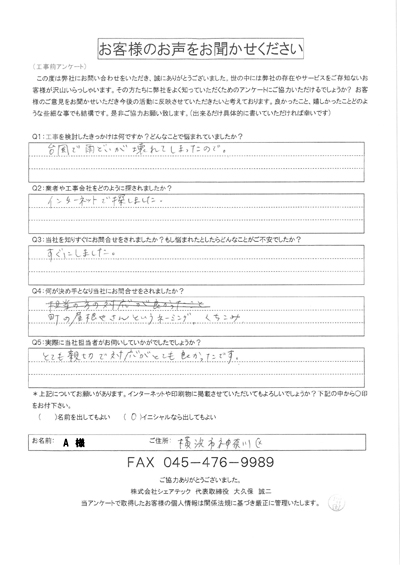 お客様のお声をお聞かせください
(工事前アンケート)
この度は弊社にお問い合わせをいただき、誠にありがとうございました。世の中には弊社の存在やサービスをご存知ないお
客様が沢山いらっしゃいます。その方たちに弊社をよく知っていただくためのアンケートにご協力いただけるでしょうか? お客
様のご意見をお聞かせいただき今後の活動に反映させていただきたいと考えております。良かったこと、嬉しかったことどのよ
うな些細な事でも結構です。是非ご協力お願い致します。(出来るだけ具体的に書いていただければ幸いです)
Q1:工事を検討したきっかけは何ですか?どんなことで悩まれていましたか?
台風で雨どいが壊れてしまったので。
Q2:業者や工事会社をどのように探されましたか?
インターネットで探しました。
Q3:当社を知りすぐにお問合せをされましたか?もし悩まれたとしたらどんなことがご不安でしたか?
すぐにしました。
Q4:何が決め手となり当社にお問合せをされましたか?
担当の方の対応が良かったこと
町の屋根やさんというネーミング、くちこみ
Q5:実際に当社担当者がお伺いしていかがでしたでしょうか?
とても親切で対応がとても良かったです。
*上記についてお願いがあります。インターネットや印刷物に掲載させていただいてもよろしいでしょうか? 下記の中から〇印
をお付下さい。
( )名前を出してもよい (〇)イニシャルなら出してもよい
お名前: A 様 ご住所: 横浜市神奈川区
FAX 045-476-9989
ご協力ありがとうございました。
株式会社シェアテック 代表取締役 大久保 誠二
当アンケートで取得したお客様の個人情報は関係法規に基づき厳正に管理いたします。